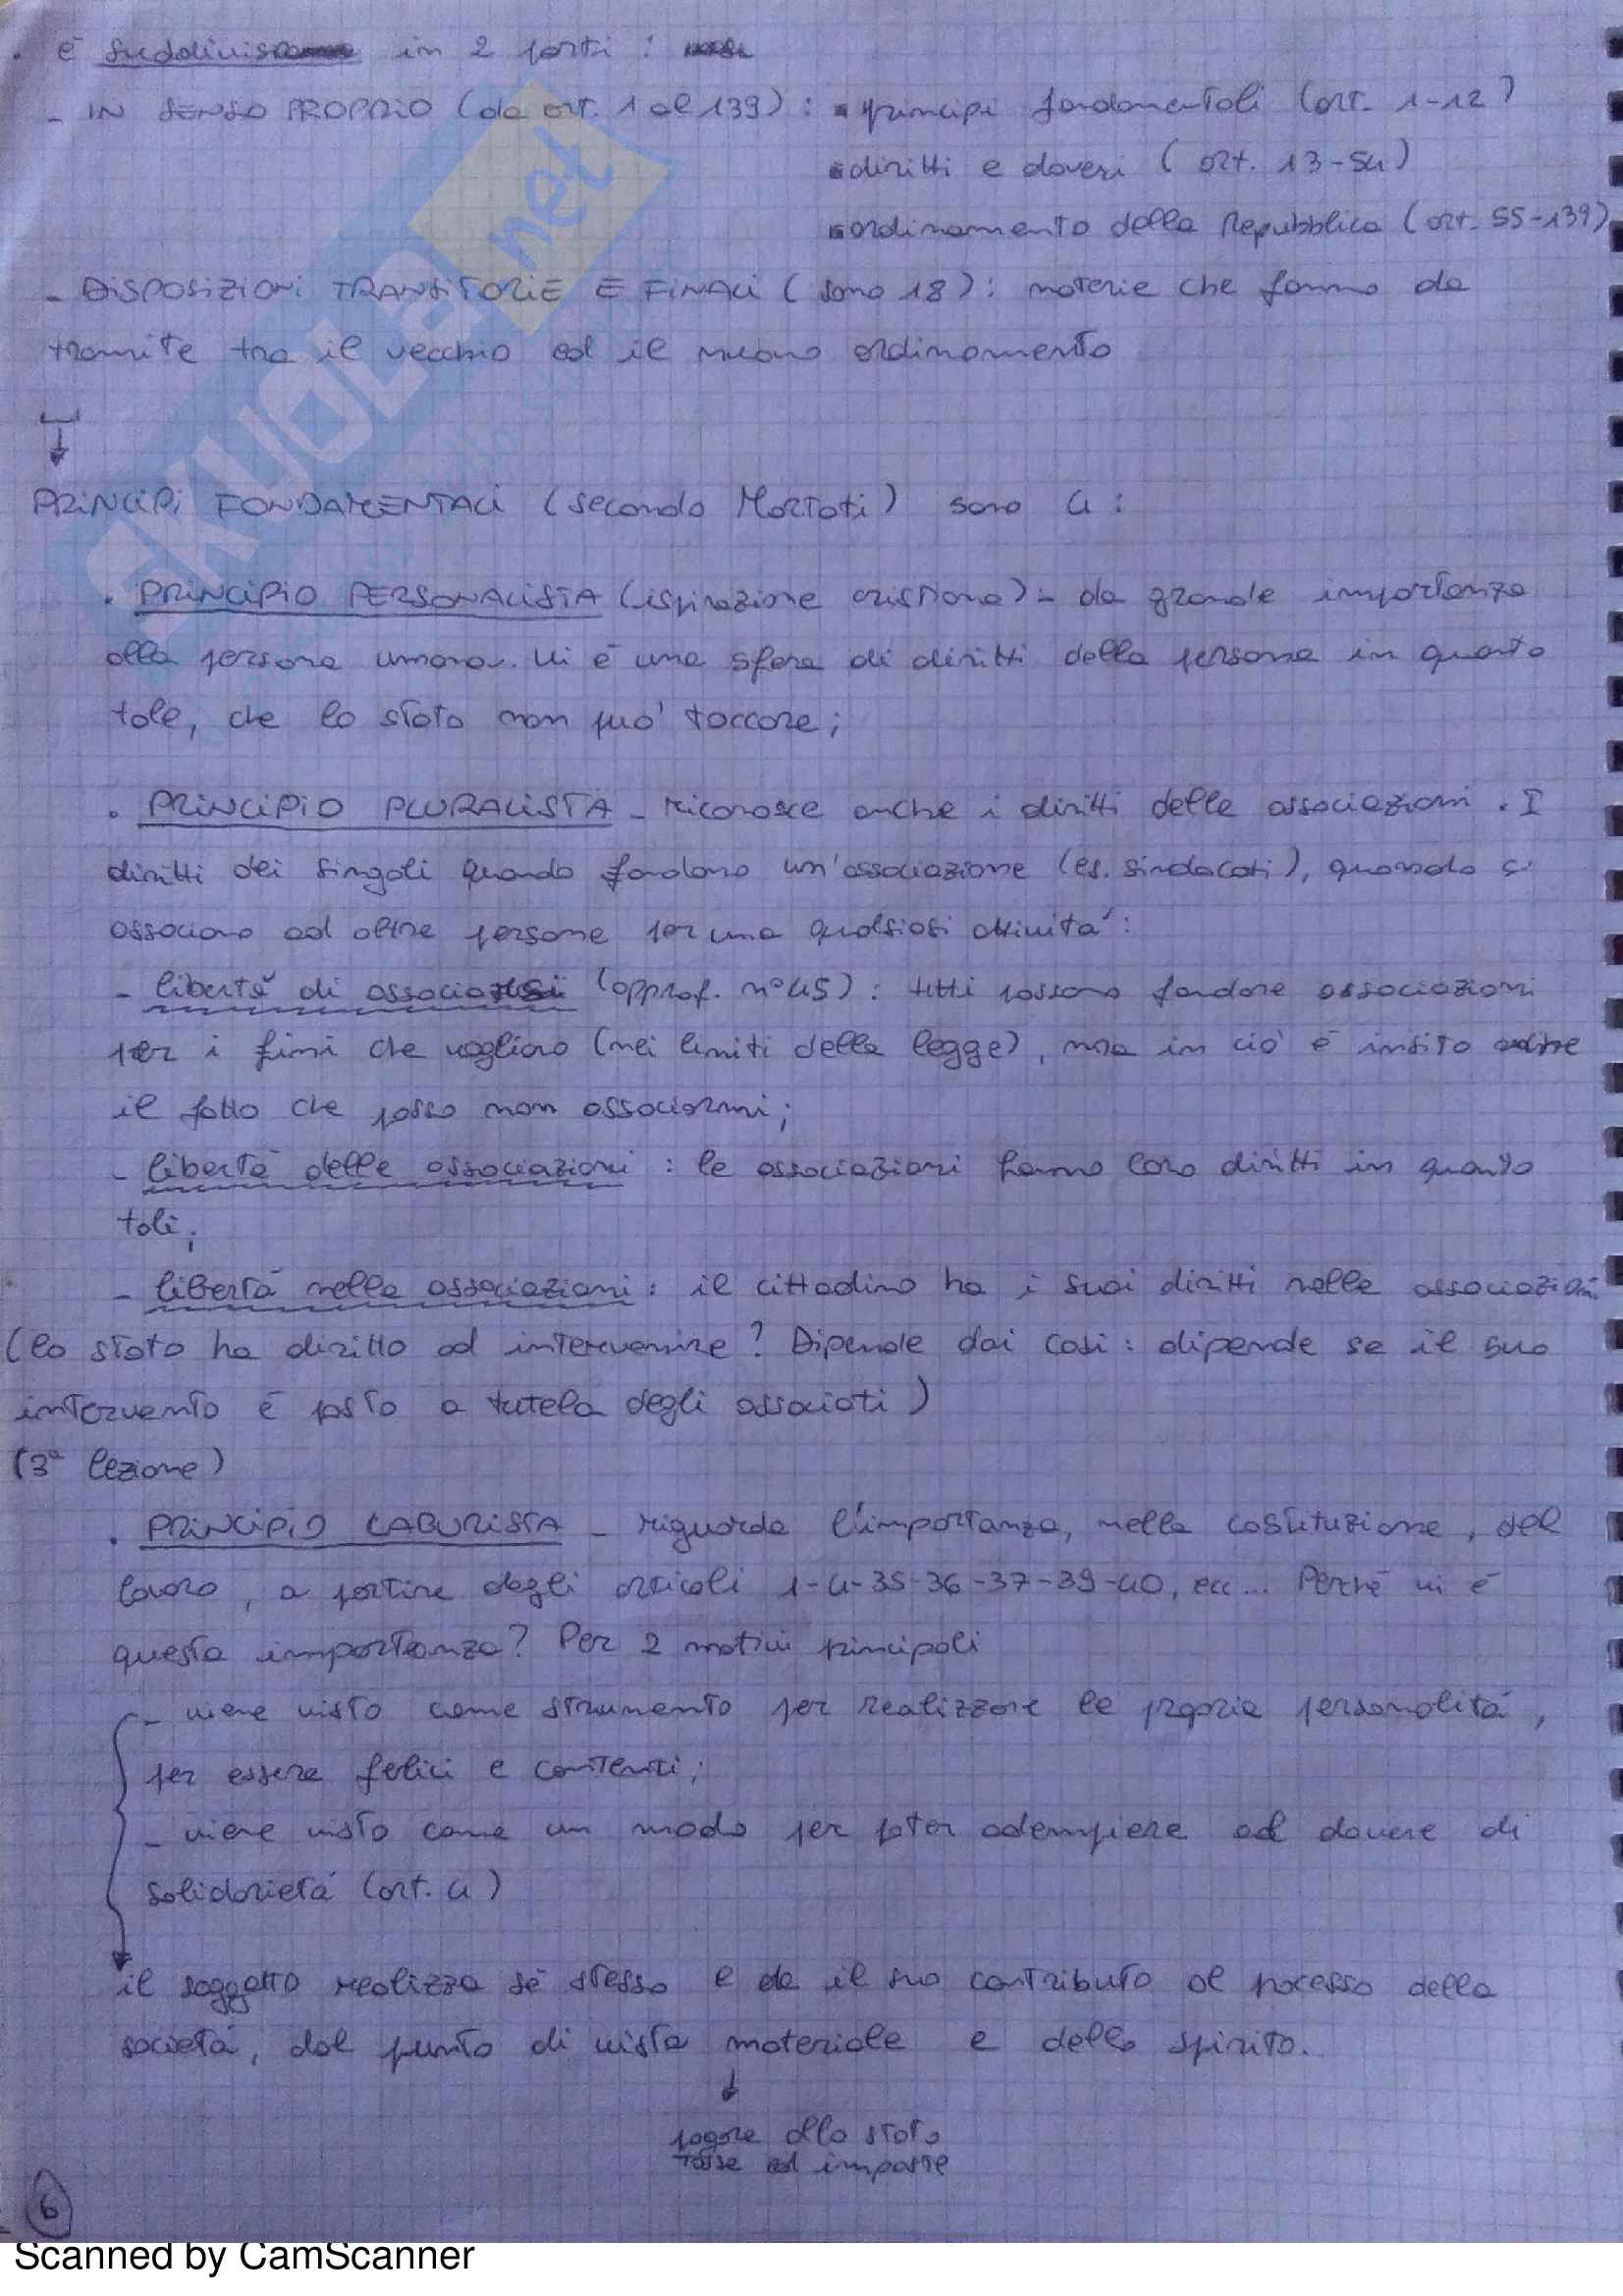 . è suddivisa in 2 parti :
- IN SENSO PROPRIO (da art. 1 al 139) : ▪ principi fondamentali (art. 1-12)
▪ diritti e doveri ( art. 13-54)
▪ ordinamento della Repubblica (art. 55-139)
- DISPOSIZIONI TRANSITORIE E FINALI ( sono 18) : materie che fanno da
tramite tra il vecchio ed il nuovo ordinamento
↓
PRINCIPI FONDAMENTALI (secondo Mortati) sono 4 :
. PRINCIPIO PERSONALISTA (ispirazione cristiana) - da grande importanza
alla persona umana. Vi è una sfera di diritti della persona in quanto
tale, che lo stato non può toccare ;
. PRINCIPIO PLURALISTA - riconosce anche i diritti delle associazioni . I
diritti dei singoli quando fondano un'associazione (es. sindacati), quando si
associano ad altre persone per una qualsiasi attività :
- libertà di associarsi (approf. n°45) : tutti possono fondare associazioni
per i fini che vogliono (nei limiti della legge), ma in ciò è insito anche
il fatto che posso non associarmi ;
- libertà delle associazioni : le associazioni hanno loro diritti in quanto
tali ;
- libertà nelle associazioni : il cittadino ha i suoi diritti nelle associazioni
(lo stato ha diritto ad intervenire ? Dipende dai casi : dipende se il suo
intervento è posto a tutela degli associati )
(3ª lezione)
. PRINCIPIO LABURISTA - riguarda l'importanza, nella costituzione, del
lavoro, a partire dagli articoli 1-4-35-36-37-39-40, ecc... Perchè vi è
questa importanza? Per 2 motivi principali
- viene visto come strumento per realizzare la propria personalità,
per essere felici e contenti ;
- viene visto come un modo per poter adempiere al dovere di
solidarietà (art. 4 )
il soggetto realizza sè stesso e da il suo contributo al pocesso della
società, dal punto di vista materiale e dello spirito.
↓
pagare allo stato
tasse ed imposte
6
SKUOLA.net
Scanned by CamScanner